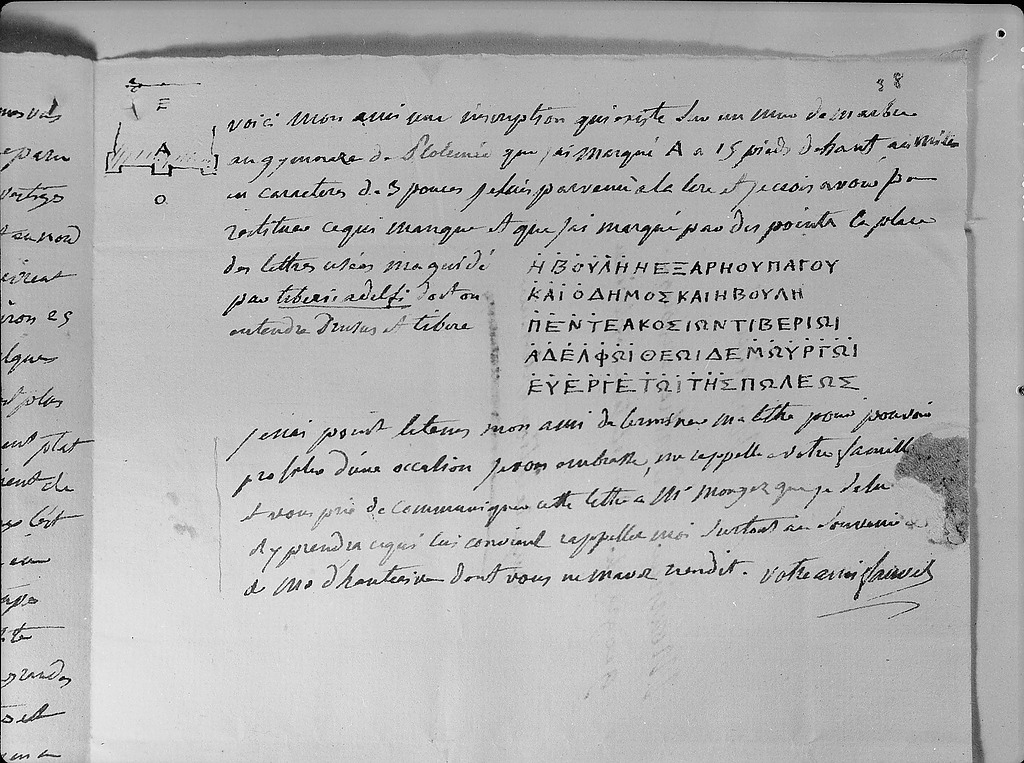 38
E
A
O
voici mon ami une inscription qui existe sur un mur de marbre
au gymnase de Ptolemée que j'ai marqué A a 15 pieds de haut au milieu
en caracteres de 3 pouces je suis parvenu a la lire et je crois avoir pu
restituer ce qui manque et que j'ai marqué par des points la place
des lettres usées ma guidé
par tiberi adelfi dont on
entendre Drusus et tibere
ΗΒΟΥΛΗΗΕΞΑΡΗΟΥΠΑΓΟΥ
ΚΑΙΟΔΗΜΟΣΚΑΙΗΒΟΥΛΗ
ΠΕΝΤΕΑΚΟΣΙΩΝΤΙΒΕΡΙΩΙ
ΑΔΕΛΦΩΙΘΕΩΙΔΕΜΩΥΡΓΩΙ
ΕΥΕΡΓΕΤΩΙΤΗΣΠΩΛΕΩΣ
je nai point le tems mon ami de terminer ma lettre pour pouvoir
profiter d'une occasion je vous embrasse, me rappelle a votre famille
et vous prie de communiquer cette lettre a Mr Mongez que je salue
et y prendra ce qui lui convient rappellez moi surtout au souvenir
de Md d'hauterive dont vous ne mavez rien dit. votre ami fauvel
mes vas
vestiges
et au nord
25
elques
et plus
grandes